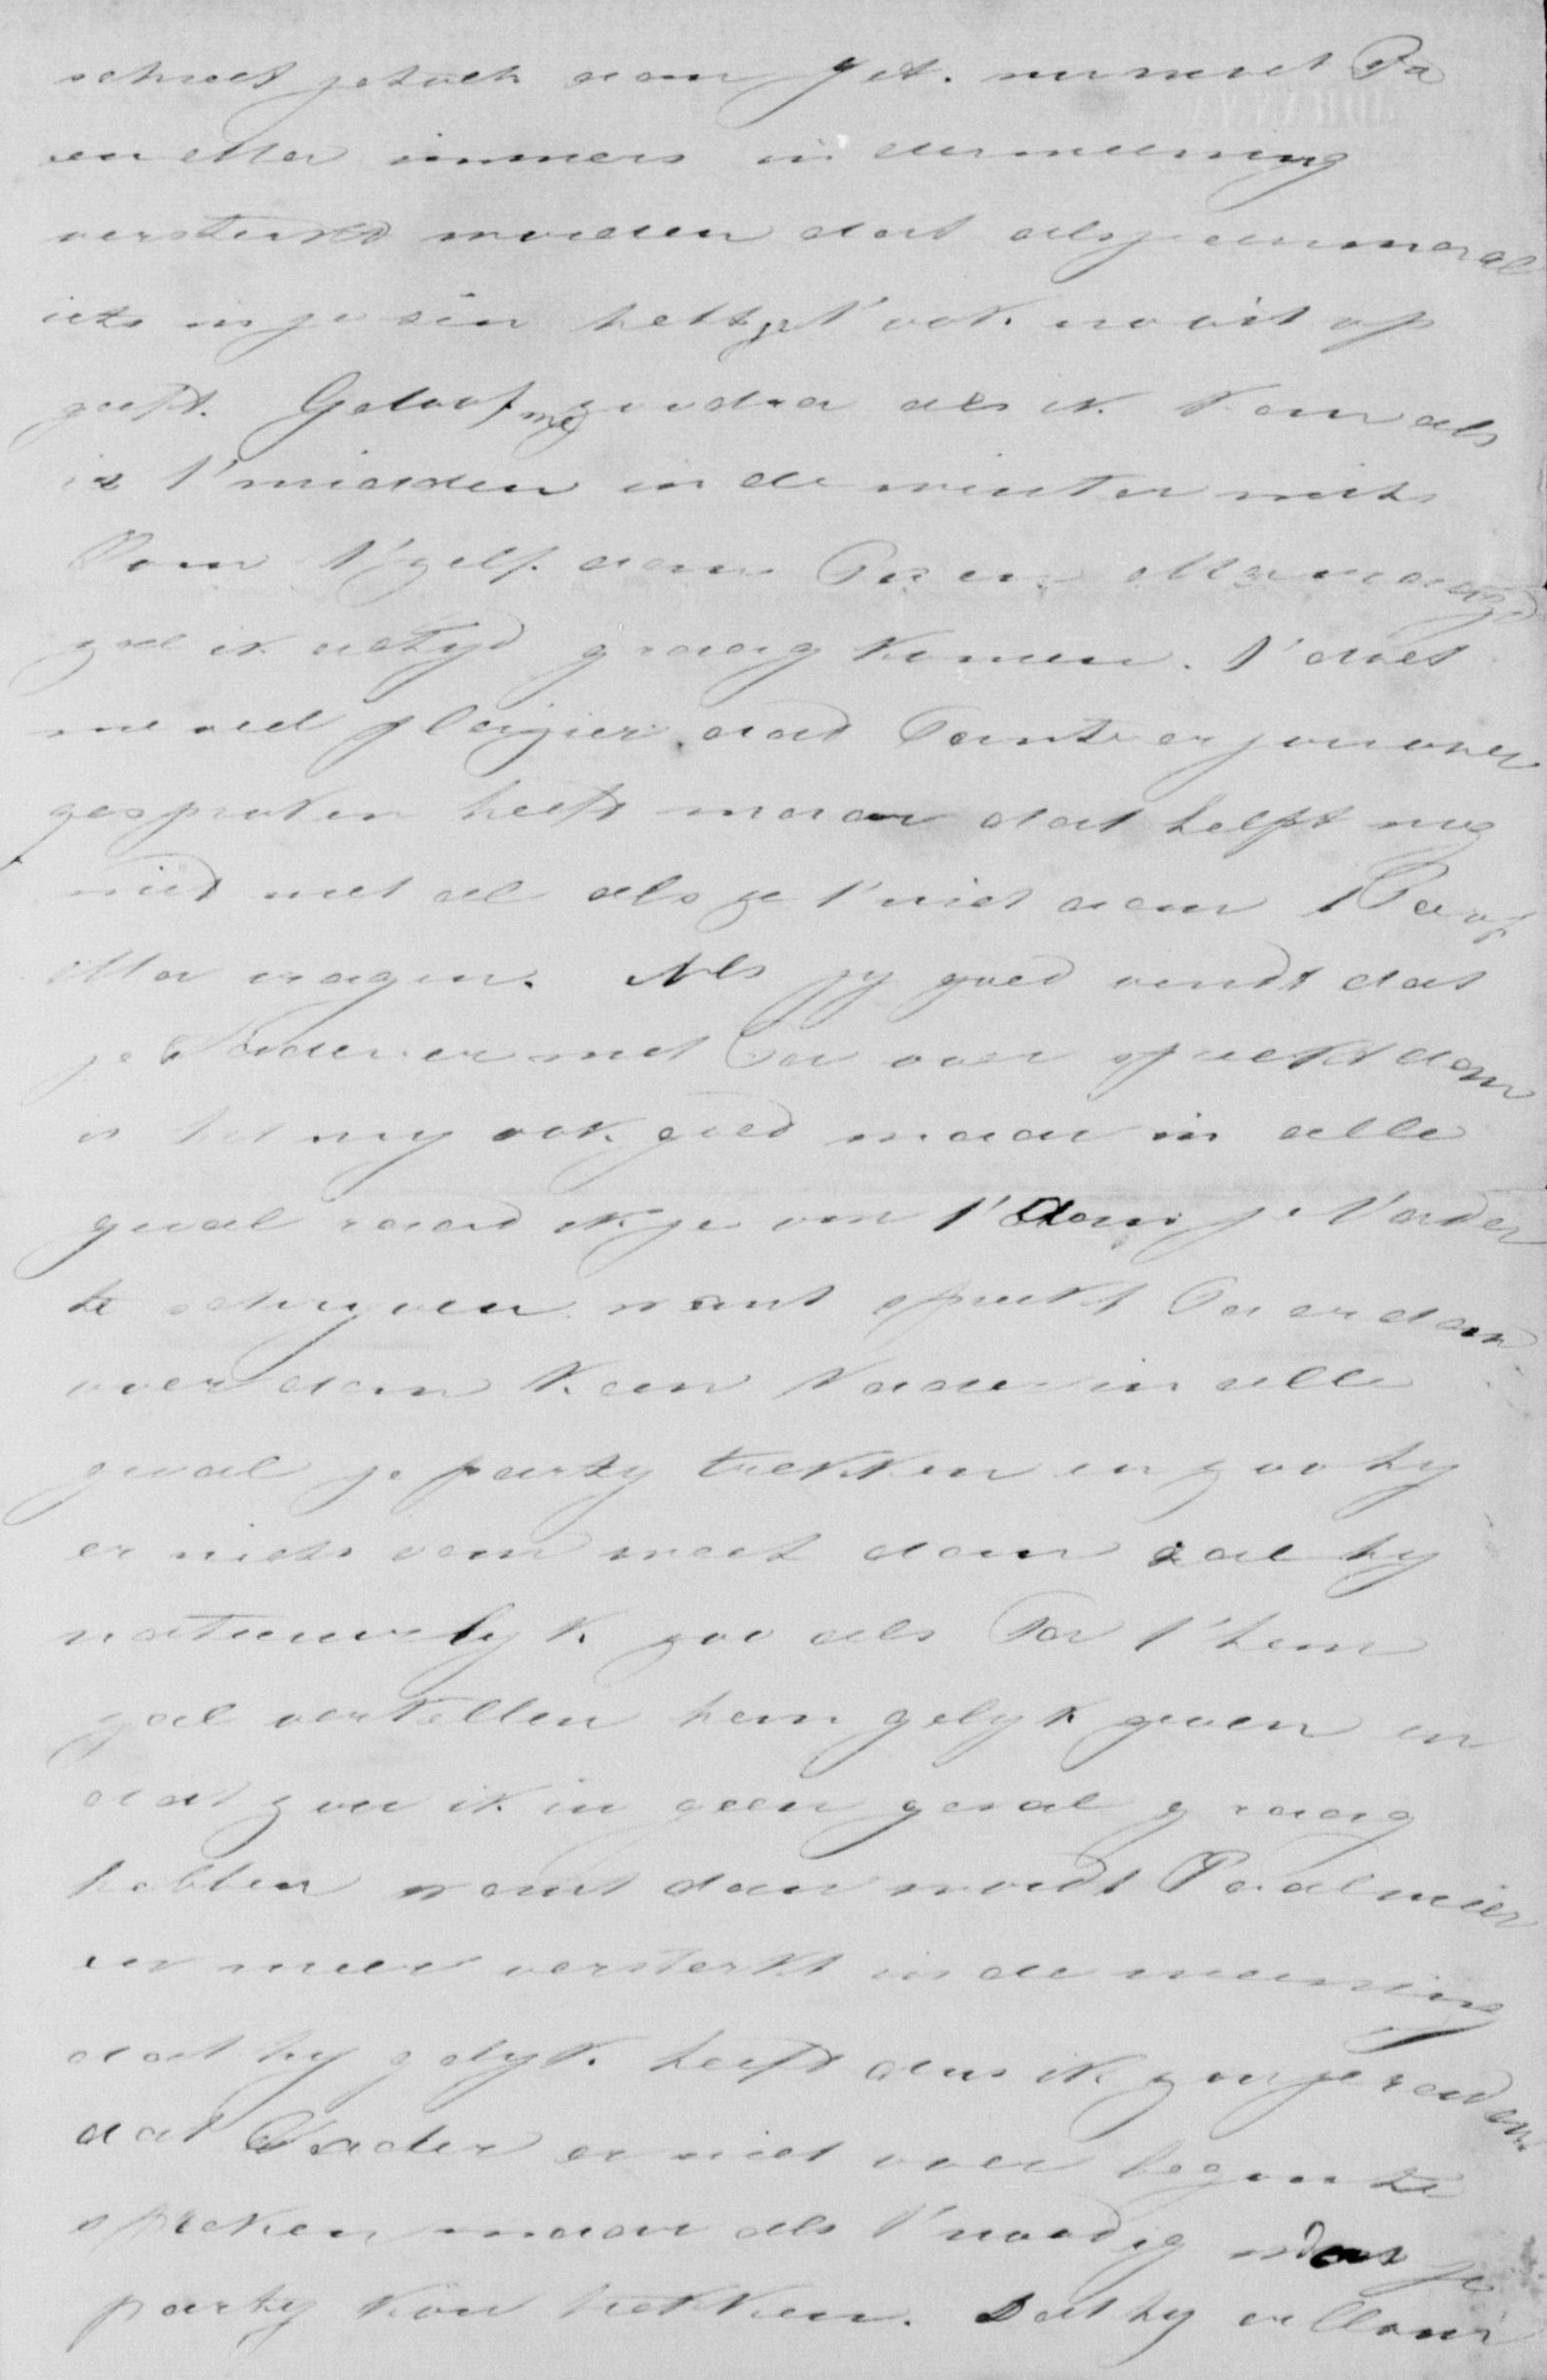 schreef je toch aan Jet. nu moet Pa
en Ma immers in de meening
versterkt worden dat als je eenmaal
iets in je sin hebt je 't ook nooit op
geeft. Geloof me zoodra als ik kan als
is 't midden in de winter mits
Pam 't zelf aan Pa en Ma vraagd
zal ik altyd graag komen. 't doet
me veel pleizier dat Tante er jou over
gesproken heeft maar dat helpt nog
niet met al als ze 't niet aan Pa of
Ma vragen. Als jy goed vindt dat
je Vader er met Pa over spreekt dan
is het my ook goed maar in alle
geval raad ik je om 't dan je Vader
te schryven want spreekt Pa er dan
over dan kan Vader in alle
geval je party trekken en zoo hy
er niets van weet dan zal hy
natuurlyk zoo als Pa 't hem
zal vertellen hem gelyk geven en
dat zou ik in geen geval graag
hebben want dan wordt Pa al meer
en meer versterkt in de meening
dat hy gelyk heeft dus ik zou je raden
dat Vader er niet over begon te
spreken maar als 't noodig was je
party kon trekken. Dat hy allom